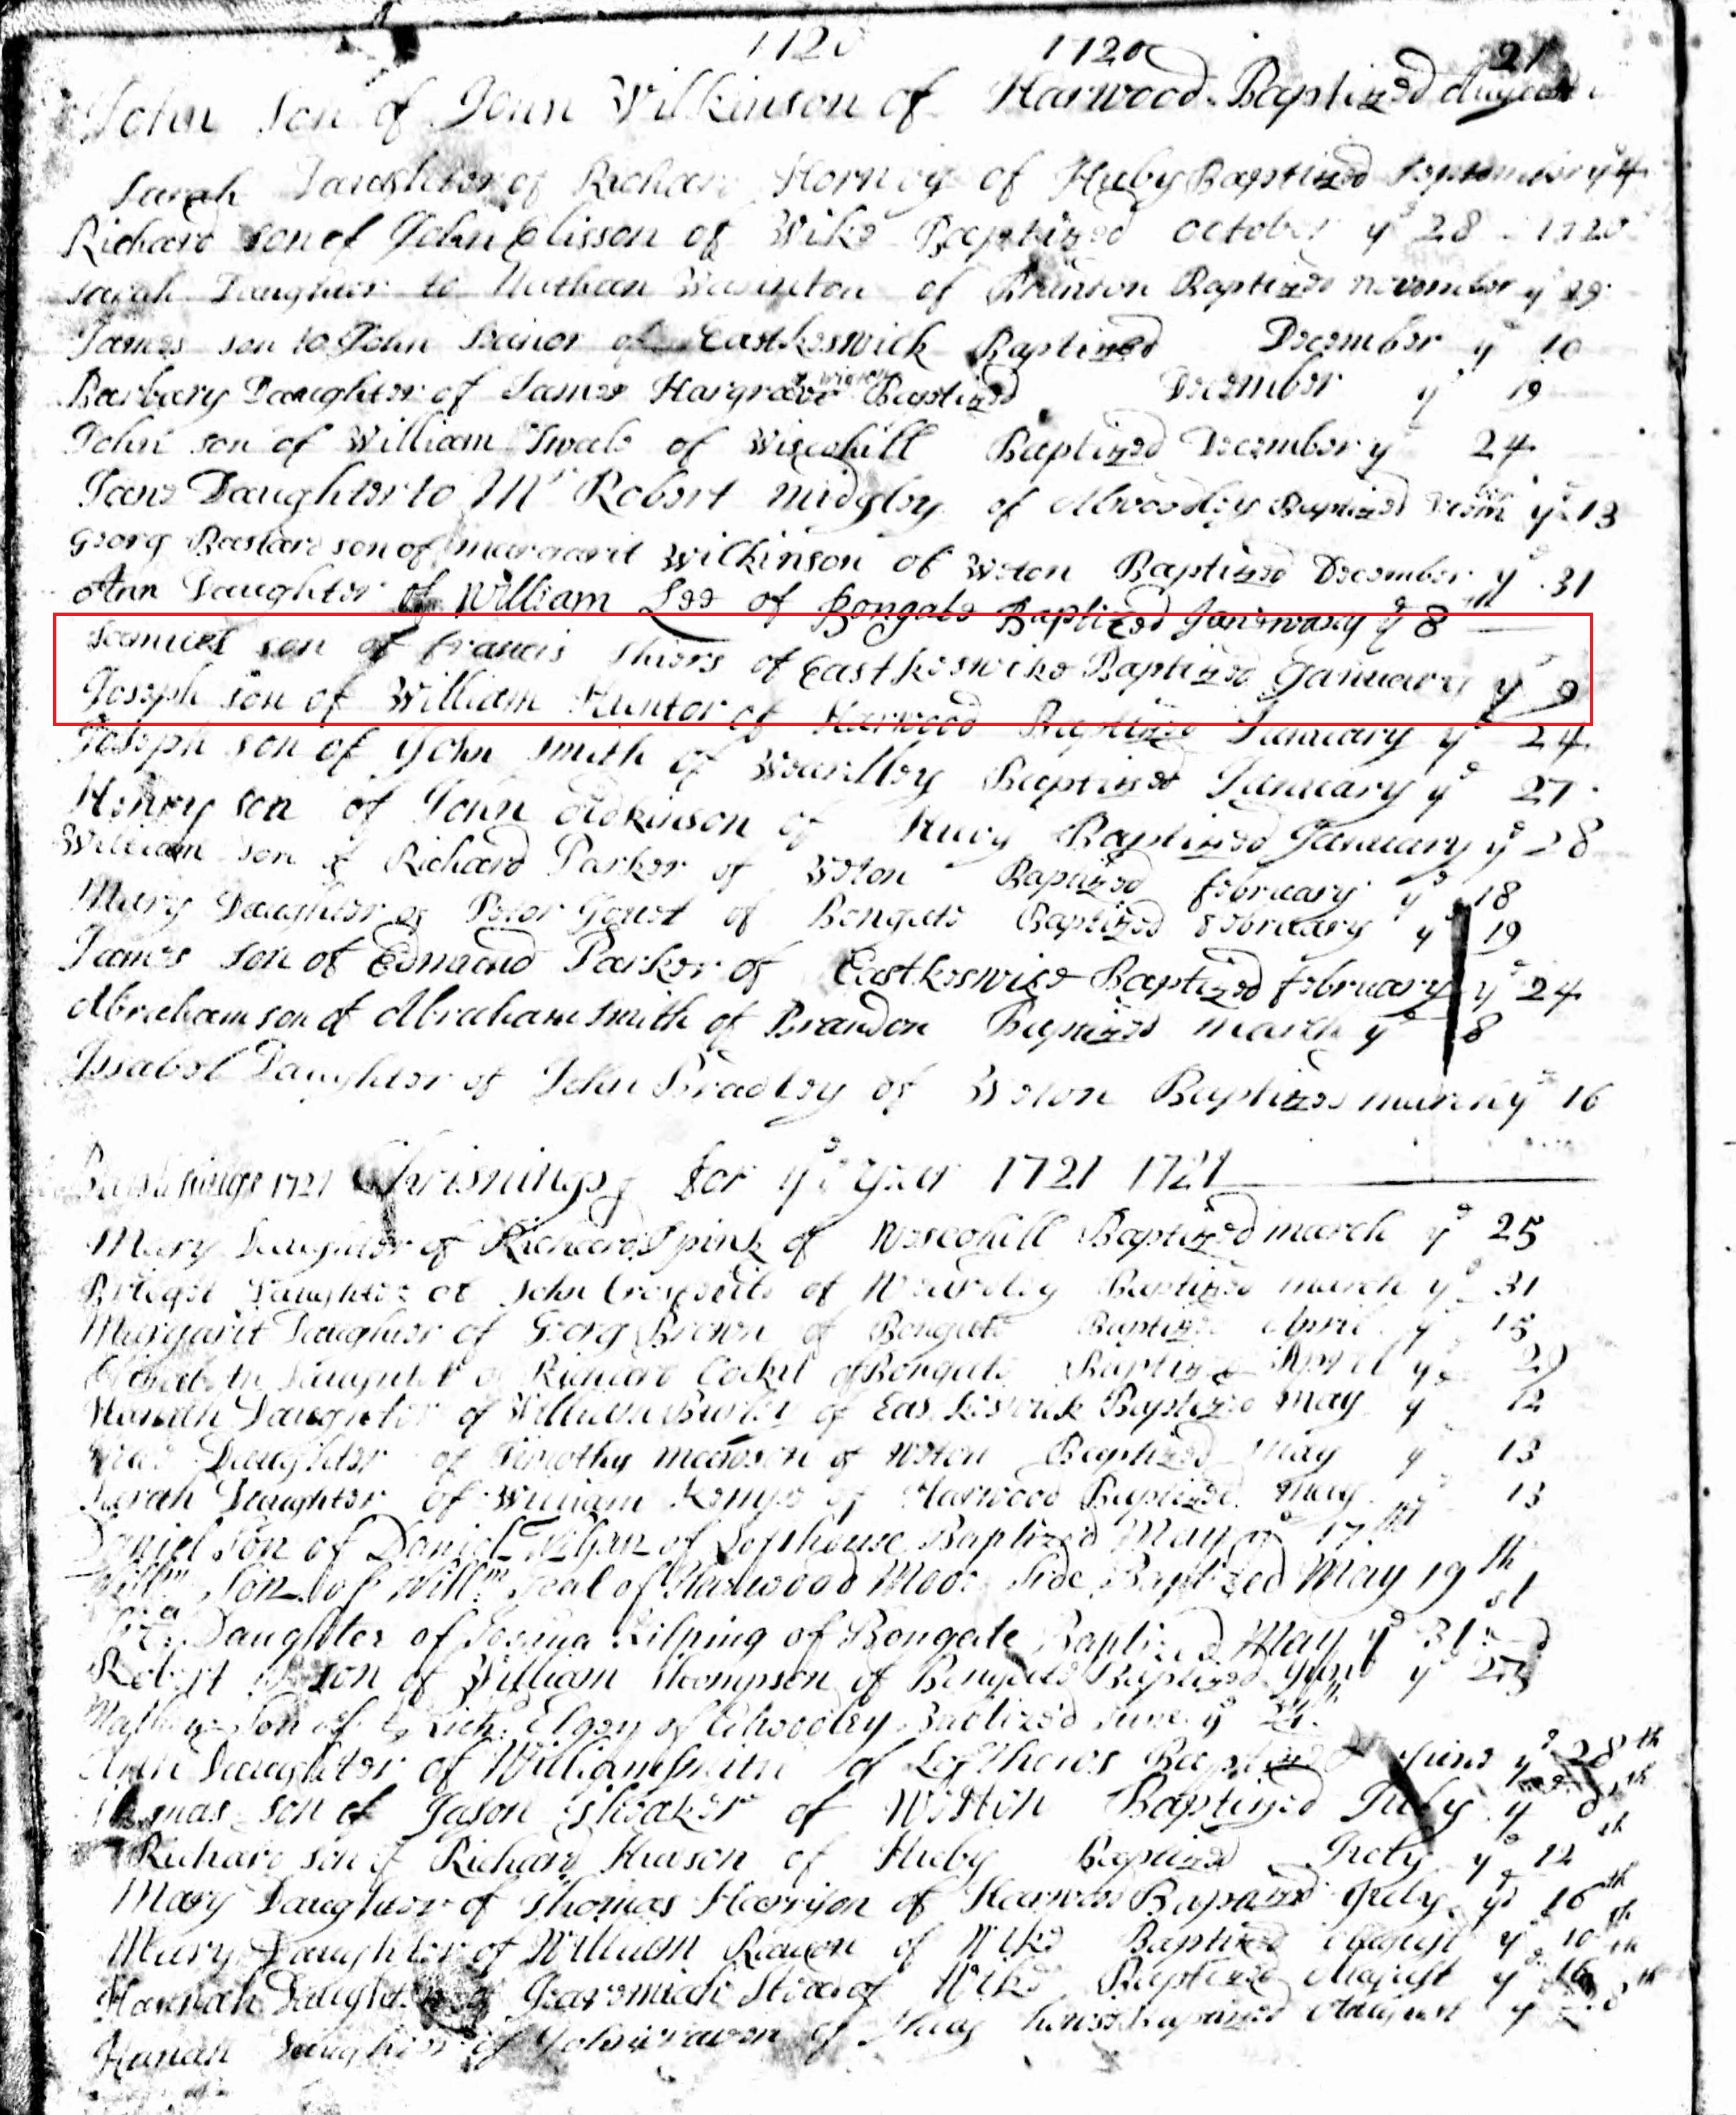 1720 1720 21
John Son of John Wilkinson of Harwood Baptized August
Sarah Daughter of Richard Hornby of Huby Baptized September y 4
Richard son of John Elisson of Wike Baptized October ye 28 1720
Sarah Daughter to Nathan of Baptized November ye 29
James son to John of Eastkeswick Baptized December ye 10
Barbary Daughter of James Hargrave Baptized December ye 19
John son of William of Wiscohill Baptized December y 24
Jane Daughter to Mr Robert Midgley of Alwoodley Baptized ye 13
Georg Bastard son of margarit Wilkinson of Weton Baptized December ye 31
Ann Daughter of William Lee of Bongate Baptized January ye 8th
Samuel son of francis Shiers of Eastkeswike Baptized January ye 9
Joseph son of William Hunter of Harwood Baptized January ye 24
Joseph son of John Smith of Weardley Baptized January ye 27
Henry son of John of Huby Baptized January ye 28
William son of Richard Parker of Weton Baptized february ye 18
Mary Daughter of Peter of Bongate Baptized february ye 19
James son of Edmund Parker of Eastkeswike Baptized february ye 24
Abraham son of Abraham Smith of Brandon Baptized march ye 8
Issabel Daughter of John Bradley of Weton Baptized march ye 16
1721 Chrisnings for ye Year 1721 1721
Mary Daughter of Richard Spink of Wescohill Baptized march ye 25
Daughter of John of Weardley Baptized march ye 31
Margarit Daughter of Georg Brown of Bongate Baptized April ye 15
Daughter of Richard of Bongate Baptized April ye
Hannah Daughter of William of Eastkeswick Baptized May ye 12
Daughter of Timothy mawson of Weton Baptized May ye 13
Sarah Daughter of William of Harwood Baptized May ye 13
Daniel Son of Daniel of Lofthouse Baptized May ye 17th
Willm Son of Willm of Harwood Moor Side Baptized May 19th
Daughter of Joshua of Bongate Baptized May ye 31st
Robert son of William Thompson of Bongate Baptized June ye
Son of of Alwoodley Baptized June ye
Ann Daughter of William Smith of Lofthows Baptized June ye 28th
Thomas son of Jason of Weton Baptized July ye
Richard son of Richard of Huby Baptized July ye 12th
Mary Daughter of Thomas Harrison of Harwood Baptized July ye 16th
Mary Daughter of William of Wike Baptized August ye 10th
Hannah Daughter of of Wike Baptized August ye 16th
Hanah Daughter of of Baptized August ye